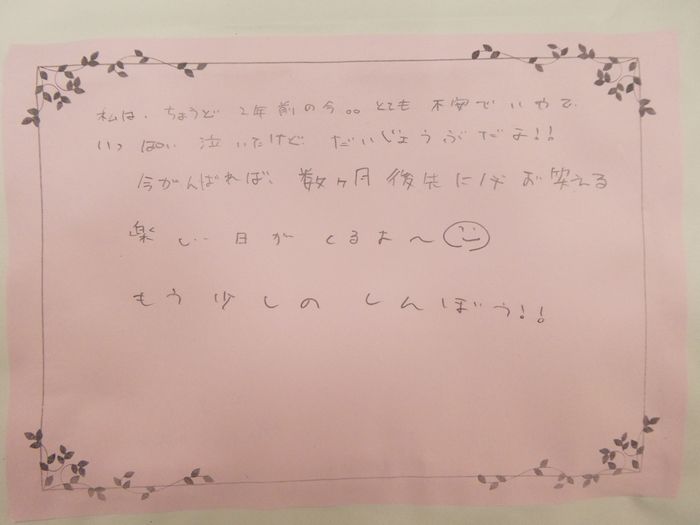 私は、ちょうど 2年前の今。。とても 不安で いやで、
いっぱい 泣いたけど だいじょうぶだよ!!
今がんばれば、数ヶ月後先には お笑える
楽しい 日が くるよ〜
もう 少しの しんぼう!!